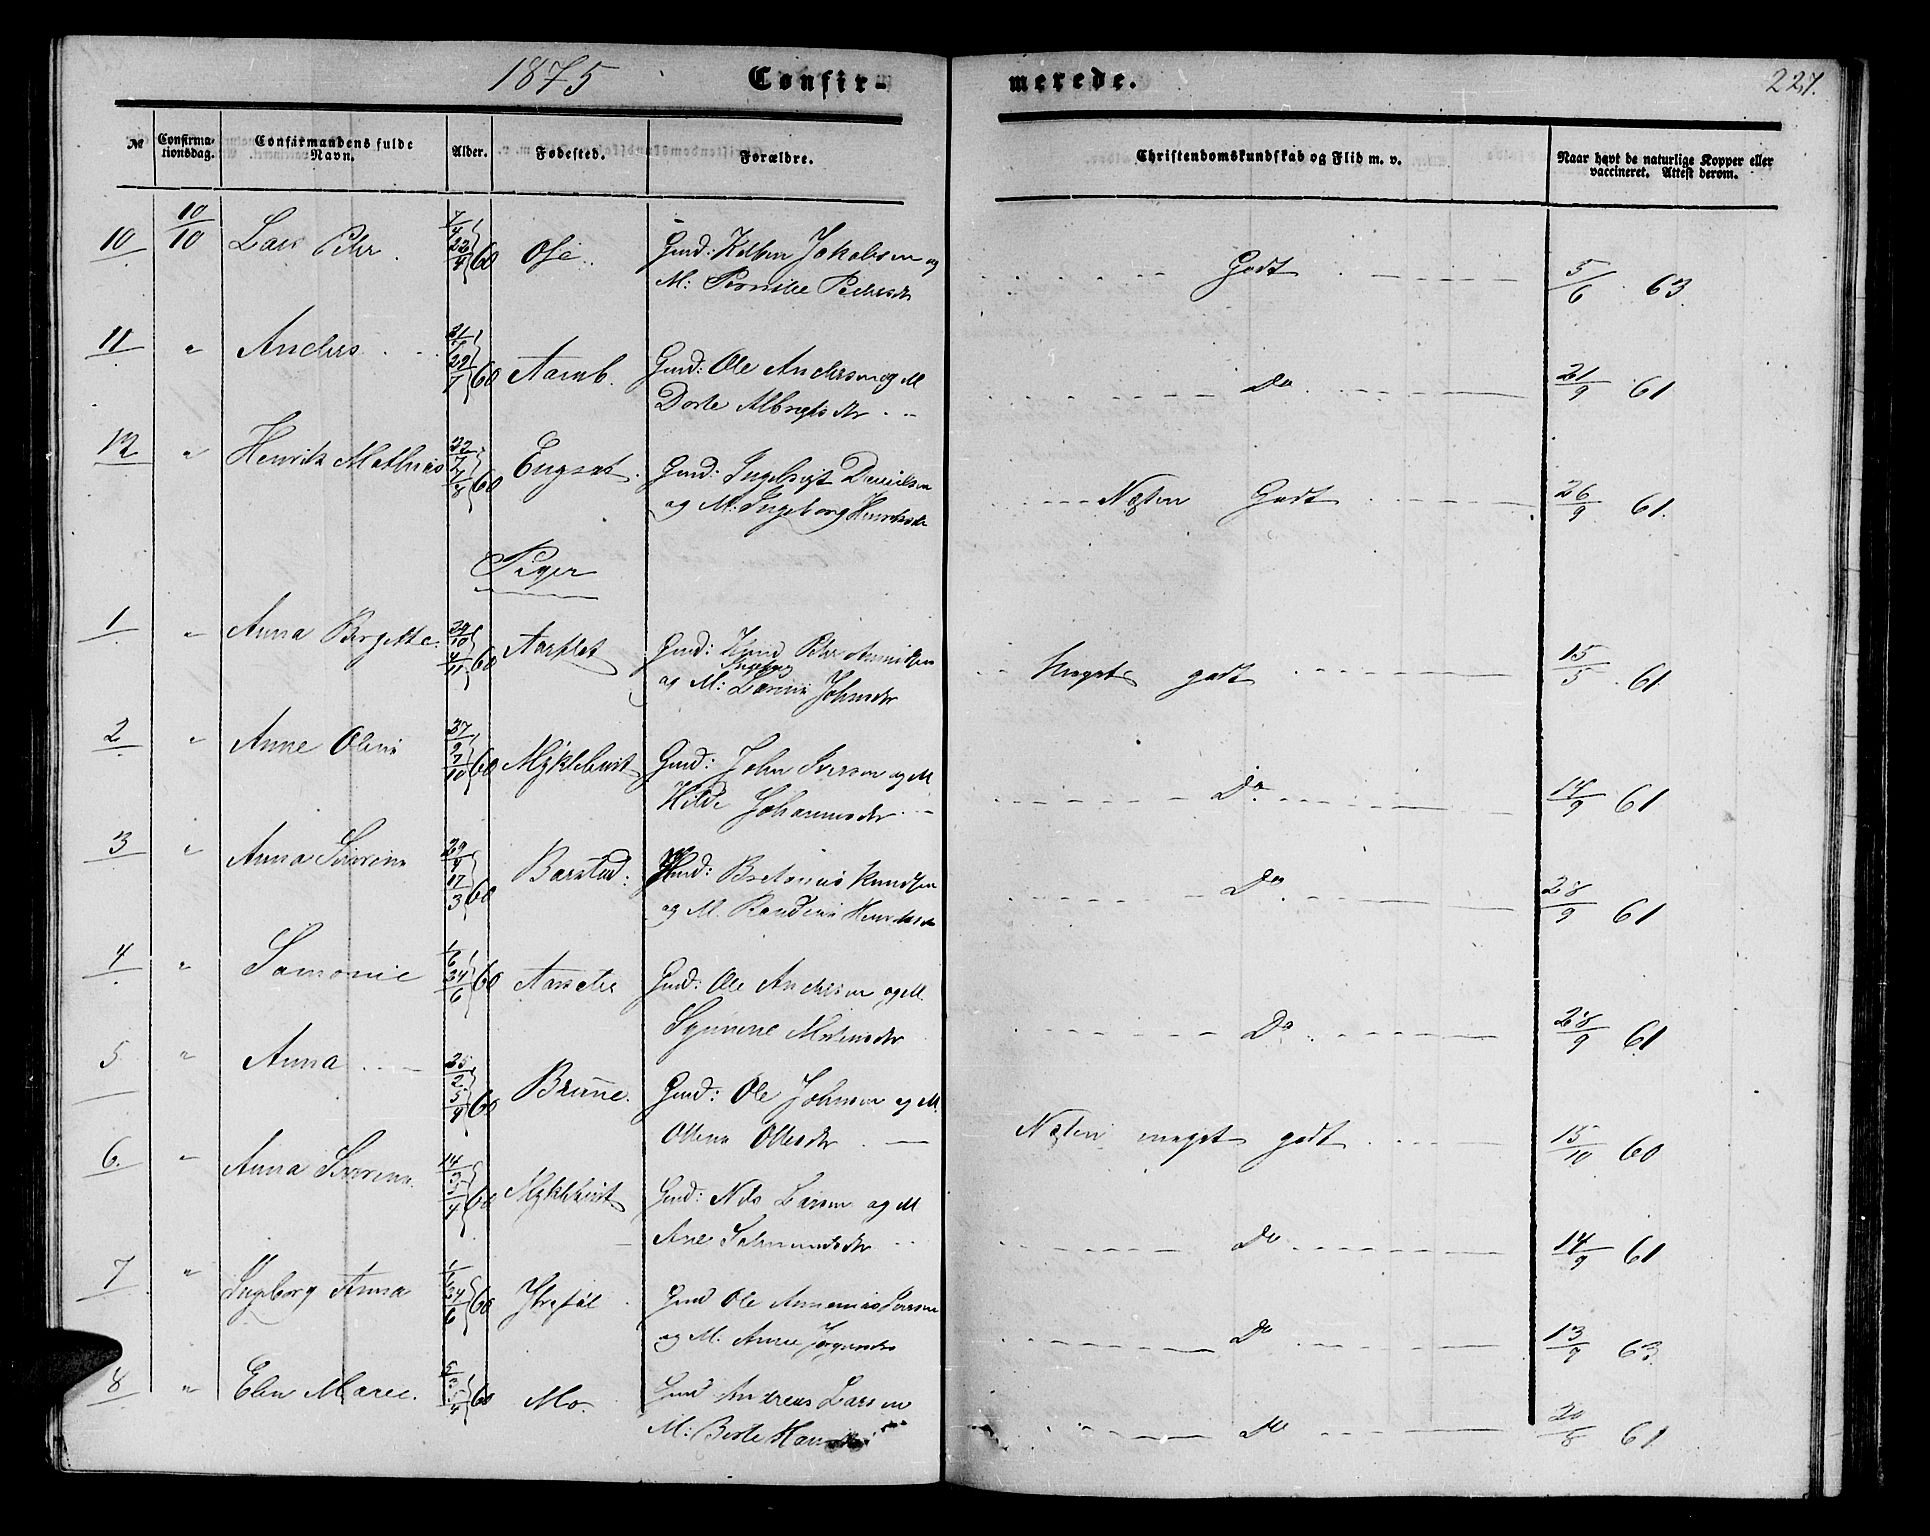 1875 Confir-
merede. 227.
№ Confirma-
tionsdag. Confirmandens fulde
Navn. Alder. Fødested. Forældre. Christendomskundskab og Flid m. v. Naar havt de naturlige Kopper eller
vaccineret. Attest derom.
10 10/10 Lars Pehr 22/4 60 Ose Gmd: Jakobsen og
M: Pernille Pedersdr
Godt 5/6 63.
11 " Anders 22/7 60 Aarseb. Gmd: Ole Andersen og M
Dorte Albregtsdr
Do 21/9 61
12 " Henrik Mathias 22/7 7/8 60 Engset. Gmd: Ingebrigt Danielsen
og M: Ingeborg Henriksdr
Næsten Godt 26/9 61.
Piger
1 " Anna Birgitte 4/11 60 Aarflot Gmd: Knud Pehr Amundsen
Ingeborg
og M: Larine Johnsdr
Meget godt 15/5 61
2 " Anne Oline 27/9 7/10 60 Myklebust Gmd: John Iversen og M
Hilde Johannesdr
Do 14/9 61
3 " Anna Severine 60 Barstad: Gmd: Knudsen
og M. Randine Henriksdr
Do 28/9 61
4 " 1/6 24/6 60 Aarseter Gmd: Ole Andersen og M.
Martinsdr
Do 28/9 61
5 " Anna 25/2 5/4 60 Brune. Gmd: Ole Johnsen og M.
Oline Olsdr
Næsten meget godt 15/10 60
6. " Anna Severine 14/3 5/4 60 Myklebust Gmd: Nils Larsen og M
Ane
Do 14/9 61
7 " Ingeborg Anna 24/6 60 Gmd Ole Iversen
og M. Anne
Do 13/9 63
8 " Elen Marie. 60 Mo. Gmd Andreas Larsen
M: Berte
Do 20/8 61